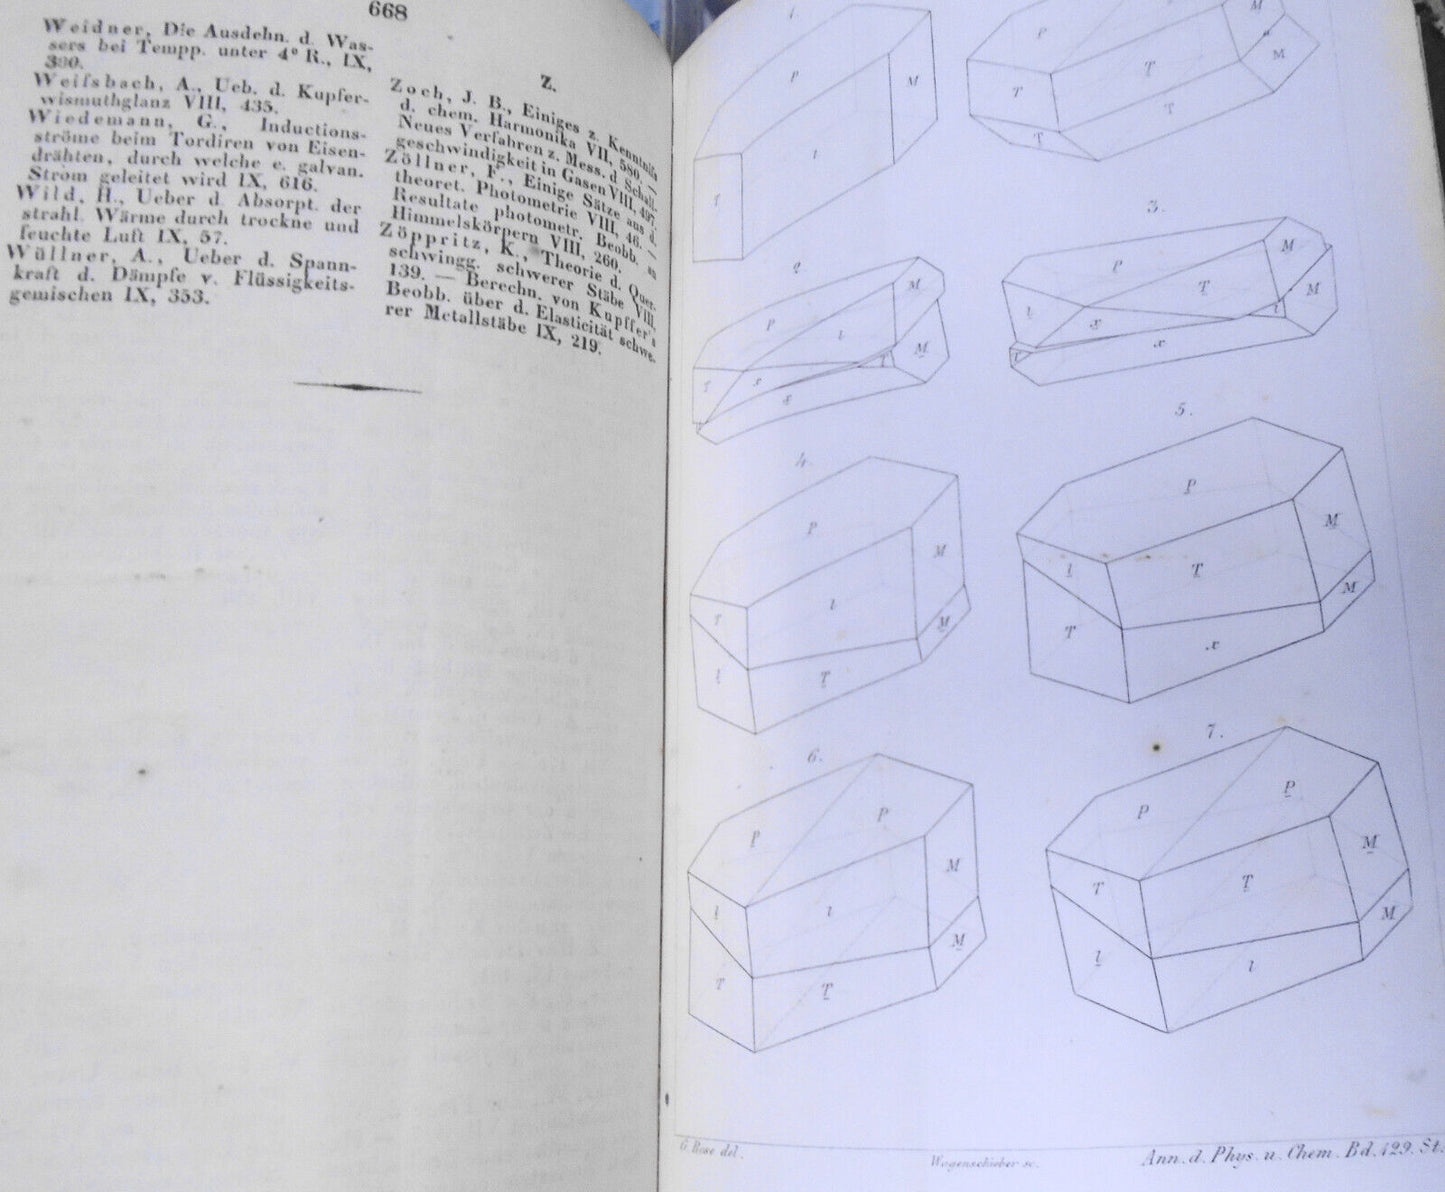 668
Weidner, Die Ausdehn. d. Was-
sers bei Tempp. unter 4° R., IX,
300.
Weifsbach, A., Ueb. d. Kupfer-
wismuthglanz VIII, 435.
Wiedemann, G., Inductions-
ströme beim Tordiren von Eisen-
drähten, durch welche e. galvan.
Strom geleitet wird IX, 616.
Wild, H., Ueber d. Absorpt. der
strahl. Wärme durch trockne und
feuchte Luft IX, 57.
Wüllner, A., Ueber d. Spann-
kraft d. Dämpfe v. Flüssigkeits-
gemischen IX, 353.
Z.
Zoch, J. B., Einiges z. Kenntnifs
d. chem. Harmonika VII, 580. —
Neues Verfahren z. Mess. d. Schall-
geschwindigkeit in Gasen VIII, 497.
Zöllner, F., Einige Sätze aus d.
theoret. Photometrie VIII, 46. —
Resultate photometr. Beobb. an
Himmelskörpern VIII, 260.
Zöppritz, K., Theorie d. Quer-
schwingg. schwerer Stäbe VIII,
139. — Berechn. von Kupffer's
Beobb. über d. Elasticität schwe-
rer Metallstäbe IX, 219.
1.
P
M
l
T
P
M
M
T
T
T
T
2
P
M
l
M
T
x
T
x
3.
P
M
T
M
l
x
l
x
T
4.
P
M
l
T
M
l
T
5.
P
M
T
l
M
T
x
6.
P
P
M
l
l
M
T
T
7.
P
P
M
T
T
M
l
l
G. Rose del.
Wagenschieber sc.
Ann. d. Phys. u. Chem. Bd. 129. St.